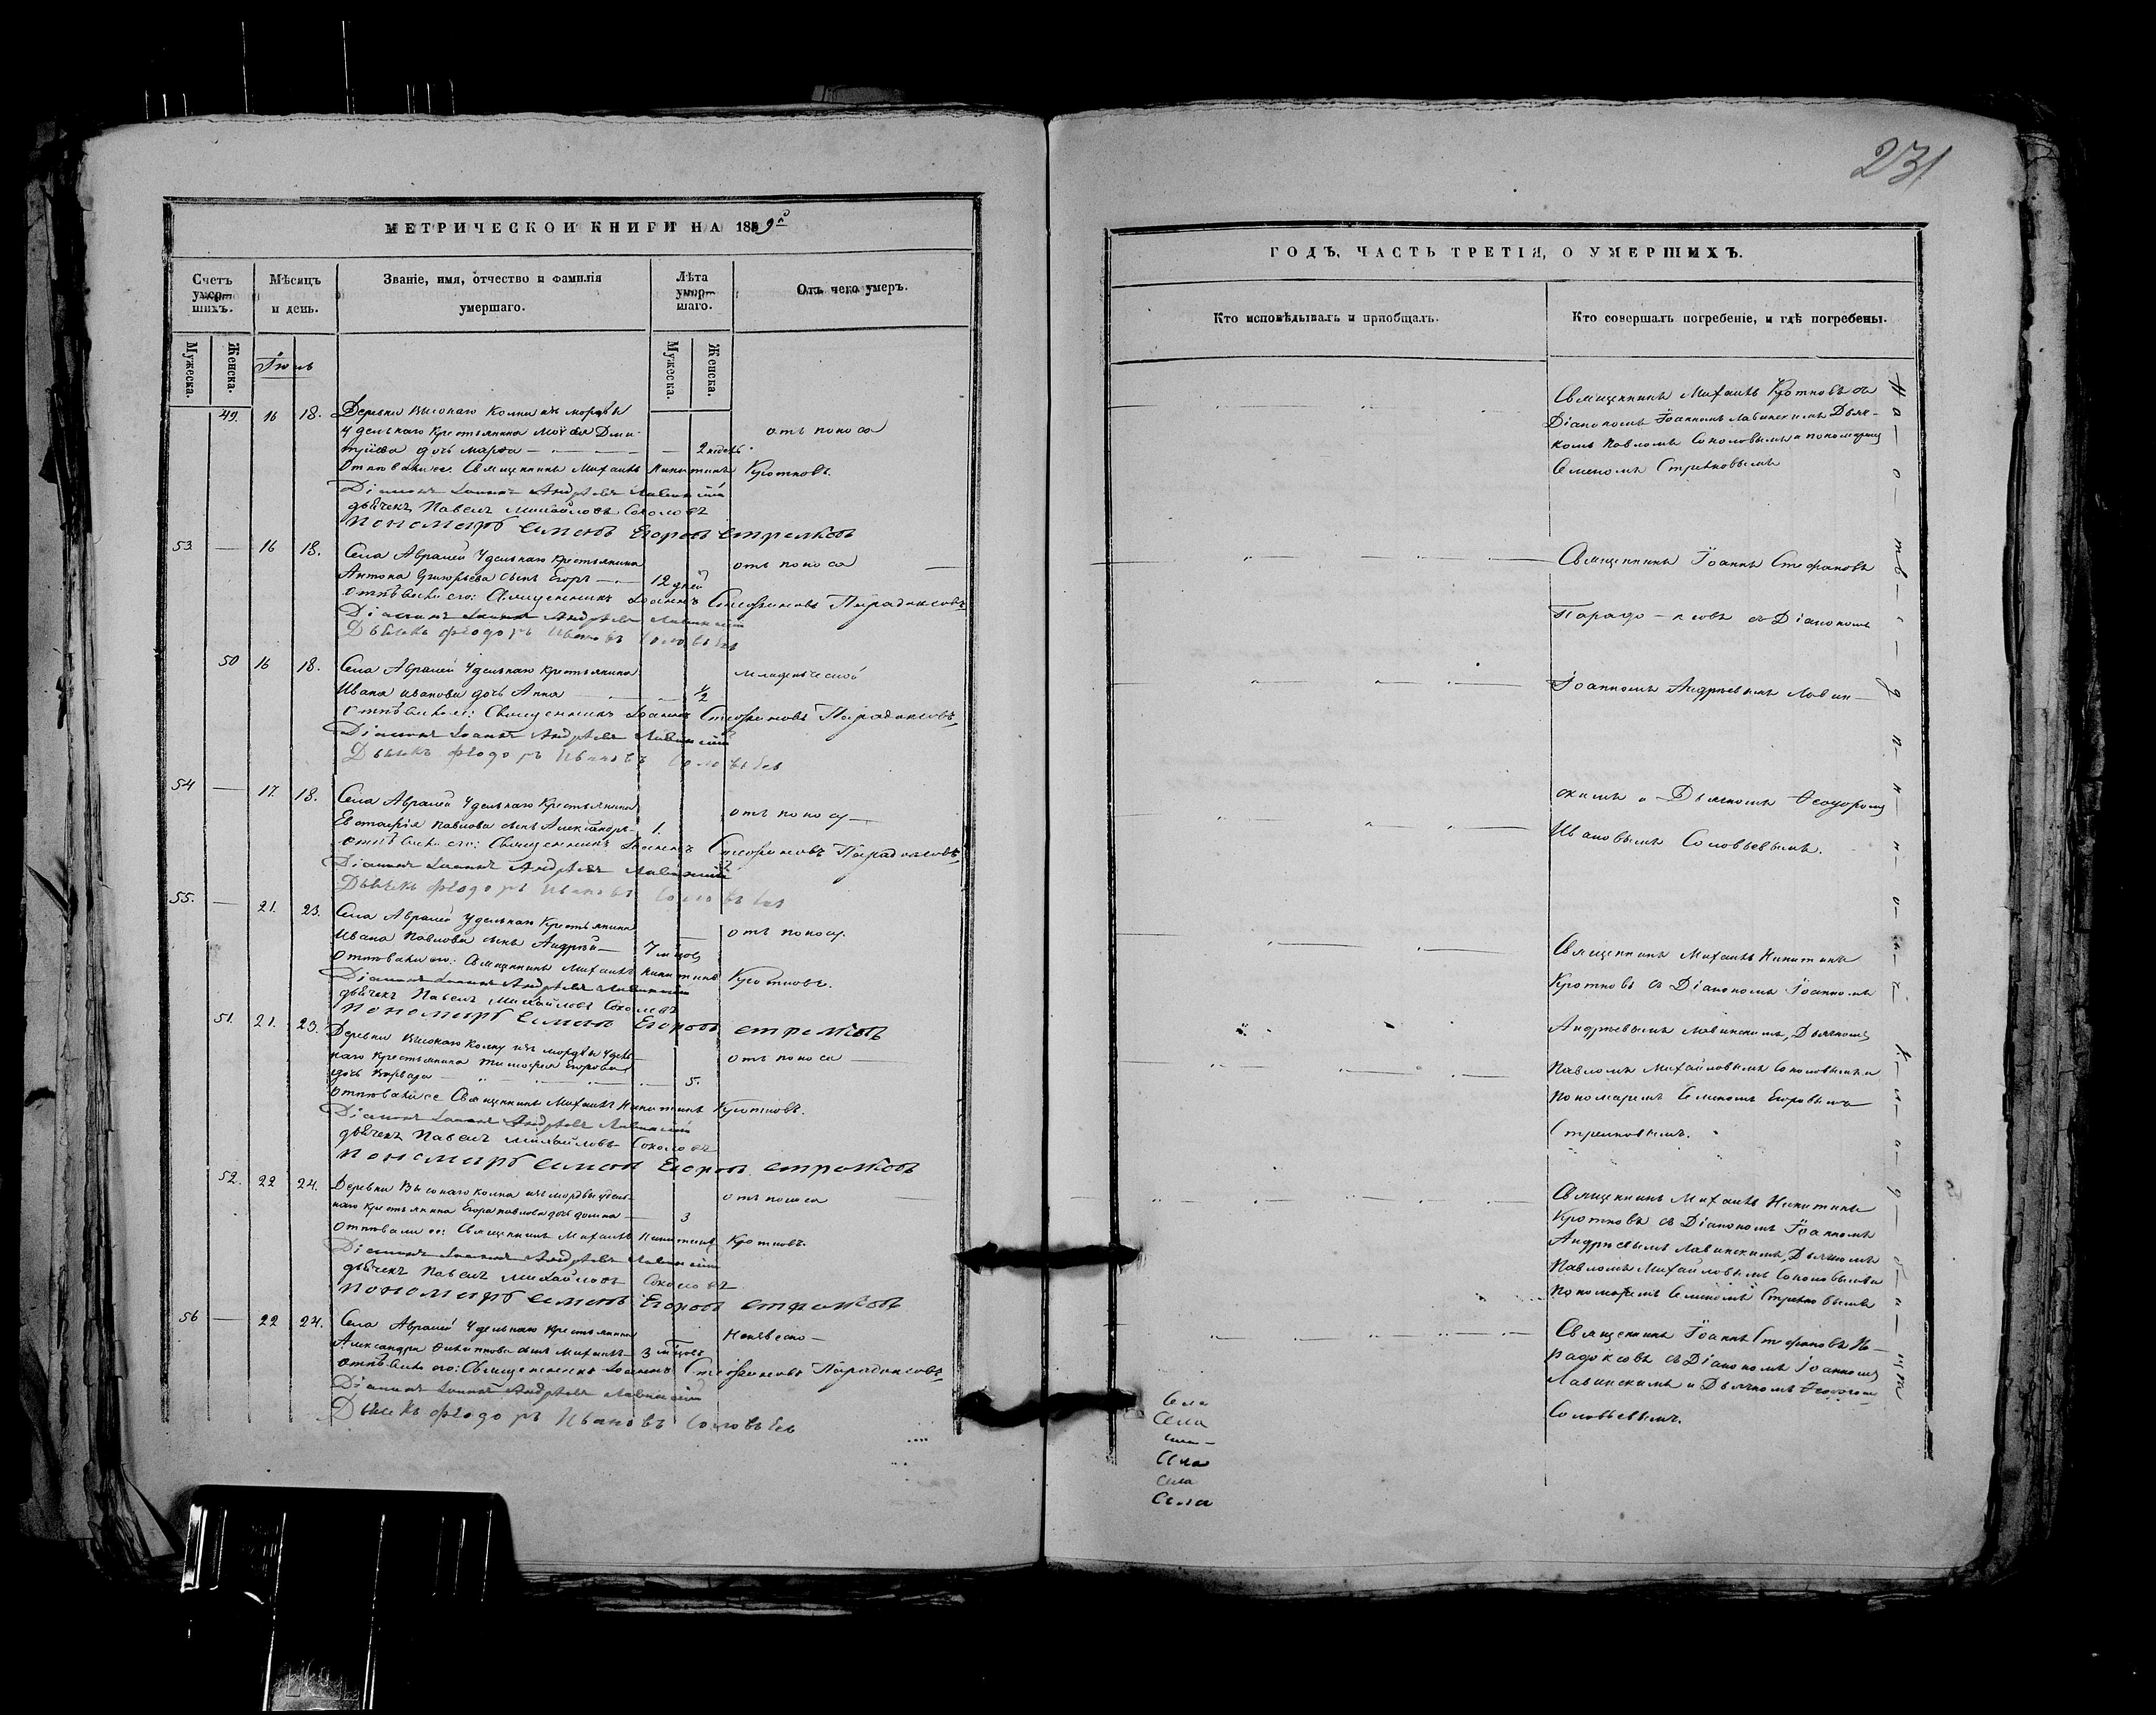 231
МЕТРИЧЕСКОЙ КНИГИ НА 1859й
Счетъ умер-шихъ.
Мѣсяцъ и день.
Званіе, имя, отчество и фамилія умершаго.
Лѣта умер-шаго.
Отъ чего умеръ.
Мужеска.
Женска.
Мужеска.
Женска.
Іюль
49. 16 18. Деревни Высокаго Колка изъ мордвы
удельнаго крестьянина Дми-
тріева дочь Марѳа — 2 недѣль отъ поноса
Отпѣвали ее: Священникъ Михаилъ Никитинъ Кротковъ.
Діаконъ Іоаннъ Андреевъ Лавинскій
дьячекъ Павелъ Михайловъ Соколовъ
пономарь Семенъ Егоровъ Стрелковъ
53. — 16 18. Села Авралей Удельнаго Крестьянина
Антона Григорьева сынъ Егоръ — 12 дней отъ поноса
отпѣвали его: Священникъ Іоаннъ Стефановъ Парадоксовъ
Діаконъ Іоаннъ Андреевъ Лавинскій
Дьячекъ Феодоръ Ивановъ Соловьевъ
50 16 18. Села Авралей Удельнаго Крестьянина
Ивана Иванова дочь Анна — ½ младенческой
отпѣвали ее: Священникъ Іоаннъ Стефановъ Парадоксовъ
Діаконъ Іоаннъ Андреевъ Лавинскій
Дьячекъ Феодоръ Ивановъ Соловьевъ
54 — 17. 18. Села Авралей Удельнаго Крестьянина
Евстафія Павлова сынъ Александръ 1. отъ поносу
отпѣвали его: Священникъ Іоаннъ Стефановъ Парадоксовъ
Діаконъ Іоаннъ Андреевъ Лавинскій
Дьячекъ Феодоръ Ивановъ Соловьевъ
55. — 21. 23. Села Авралей Удельнаго Крестьянина
Ивана Павлова сынъ Андрей — 7 мцовъ отъ поносу.
Отпѣвали его: Священникъ Михаилъ Никитинъ Кротковъ.
Діаконъ Іоаннъ Андреевъ Лавинскій
дьячекъ Павелъ Михайловъ Соколовъ
пономарь Семенъ Егоровъ Стрелковъ
51. 21. 23. Деревни Высокаго Колку изъ мордвы Удель-
наго Крестьянина Тимофея Егорова
дочь Варвара — 5. отъ поноса
Отпѣвали ее Священникъ Михаилъ Никитинъ Кротковъ.
Діаконъ Іоаннъ Андреевъ Лавинскій
дьячекъ Павелъ Михайловъ Соколовъ
пономарь Семенъ Егоровъ Стрелковъ
52. 22 24. Деревни Высокаго Колка изъ мордвы удель-
наго крестьянина Егора Павлова дочь Домна — 3 отъ поноса
Отпѣвали ее: Священникъ Михаилъ Никитинъ Кротковъ.
Діаконъ Іоаннъ Андреевъ Лавинскій
дьячекъ Павелъ Михайловъ Соколовъ
пономарь Семенъ Егоровъ Стрелковъ
56 — 22 24. Села Авралей Удельнаго Крестьянина
Александра сынъ Михаилъ 3 мцовъ
отпѣвали его: Священникъ Іоаннъ Стефановъ Парадоксовъ
Діаконъ Іоаннъ Андреевъ Лавинскій
Дьячекъ Феодоръ Ивановъ Соловьевъ
ГОДЪ, ЧАСТЬ ТРЕТІЯ, О УМЕРШИХЪ.
Кто исповѣдывалъ и пріобщалъ.
Кто совершалъ погребеніе, и гдѣ погребены.
Священникъ Михаилъ Кротковъ съ
Діакономъ Іоанномъ Лавинскимъ Дьяч-
комъ Павломъ Соколовымъ и пономаремъ
Семеномъ Стрелковымъ
Священникъ Іоаннъ Стефановъ
Парадо-ксовъ съ Діакономъ
Іоанномъ Андреевымъ Лавин-
скимъ и Дьячкомъ Ѳеодоромъ
Ивановымъ Соловьевымъ.
Священникъ Михаилъ Никитинъ
Кротковъ съ Діакономъ Іоанномъ
Андреевымъ Лавинскимъ, Дьячкомъ
Павломъ Михайловымъ Соколовымъ и
Пономаремъ Семеномъ Егоровымъ
Стрелковымъ.
Священникъ Михаилъ Никитинъ
Кротковъ съ Діакономъ Іоанномъ
Андреевымъ Лавинскимъ, Дьячкомъ
Павломъ Михайловымъ Соколовымъ и
Пономаремъ Семеномъ Стрелковымъ
Священникъ Іоаннъ Стефановъ Па-
радоксовъ съ Діакономъ Іоанномъ
Лавинскимъ и Дьячкомъ Ѳеодоромъ
Соловьевымъ.
На отведенномъ кладбищѣ
Села
Села
Села
Села
Села
Села